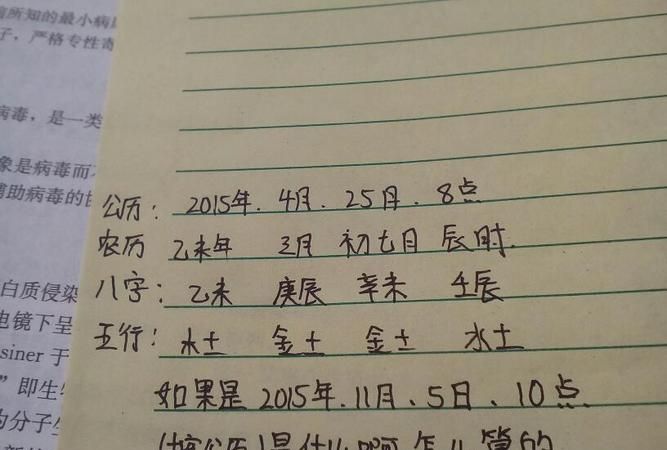 所知的最小病
子，严格专性寄
病毒，是一类
象是病毒而
辅助病毒的
白质侵染
电镜下呈
siner 于
”即生
分子生
公历：2015年.4月.25日.8点
农历 乙未年 三月 初七日 辰时.
八字：乙未 庚辰 辛未 壬辰
五行：水土 金土 金土 水土
如果是2015年.11月、5日、10点
(按公历)是什么啊怎么算的